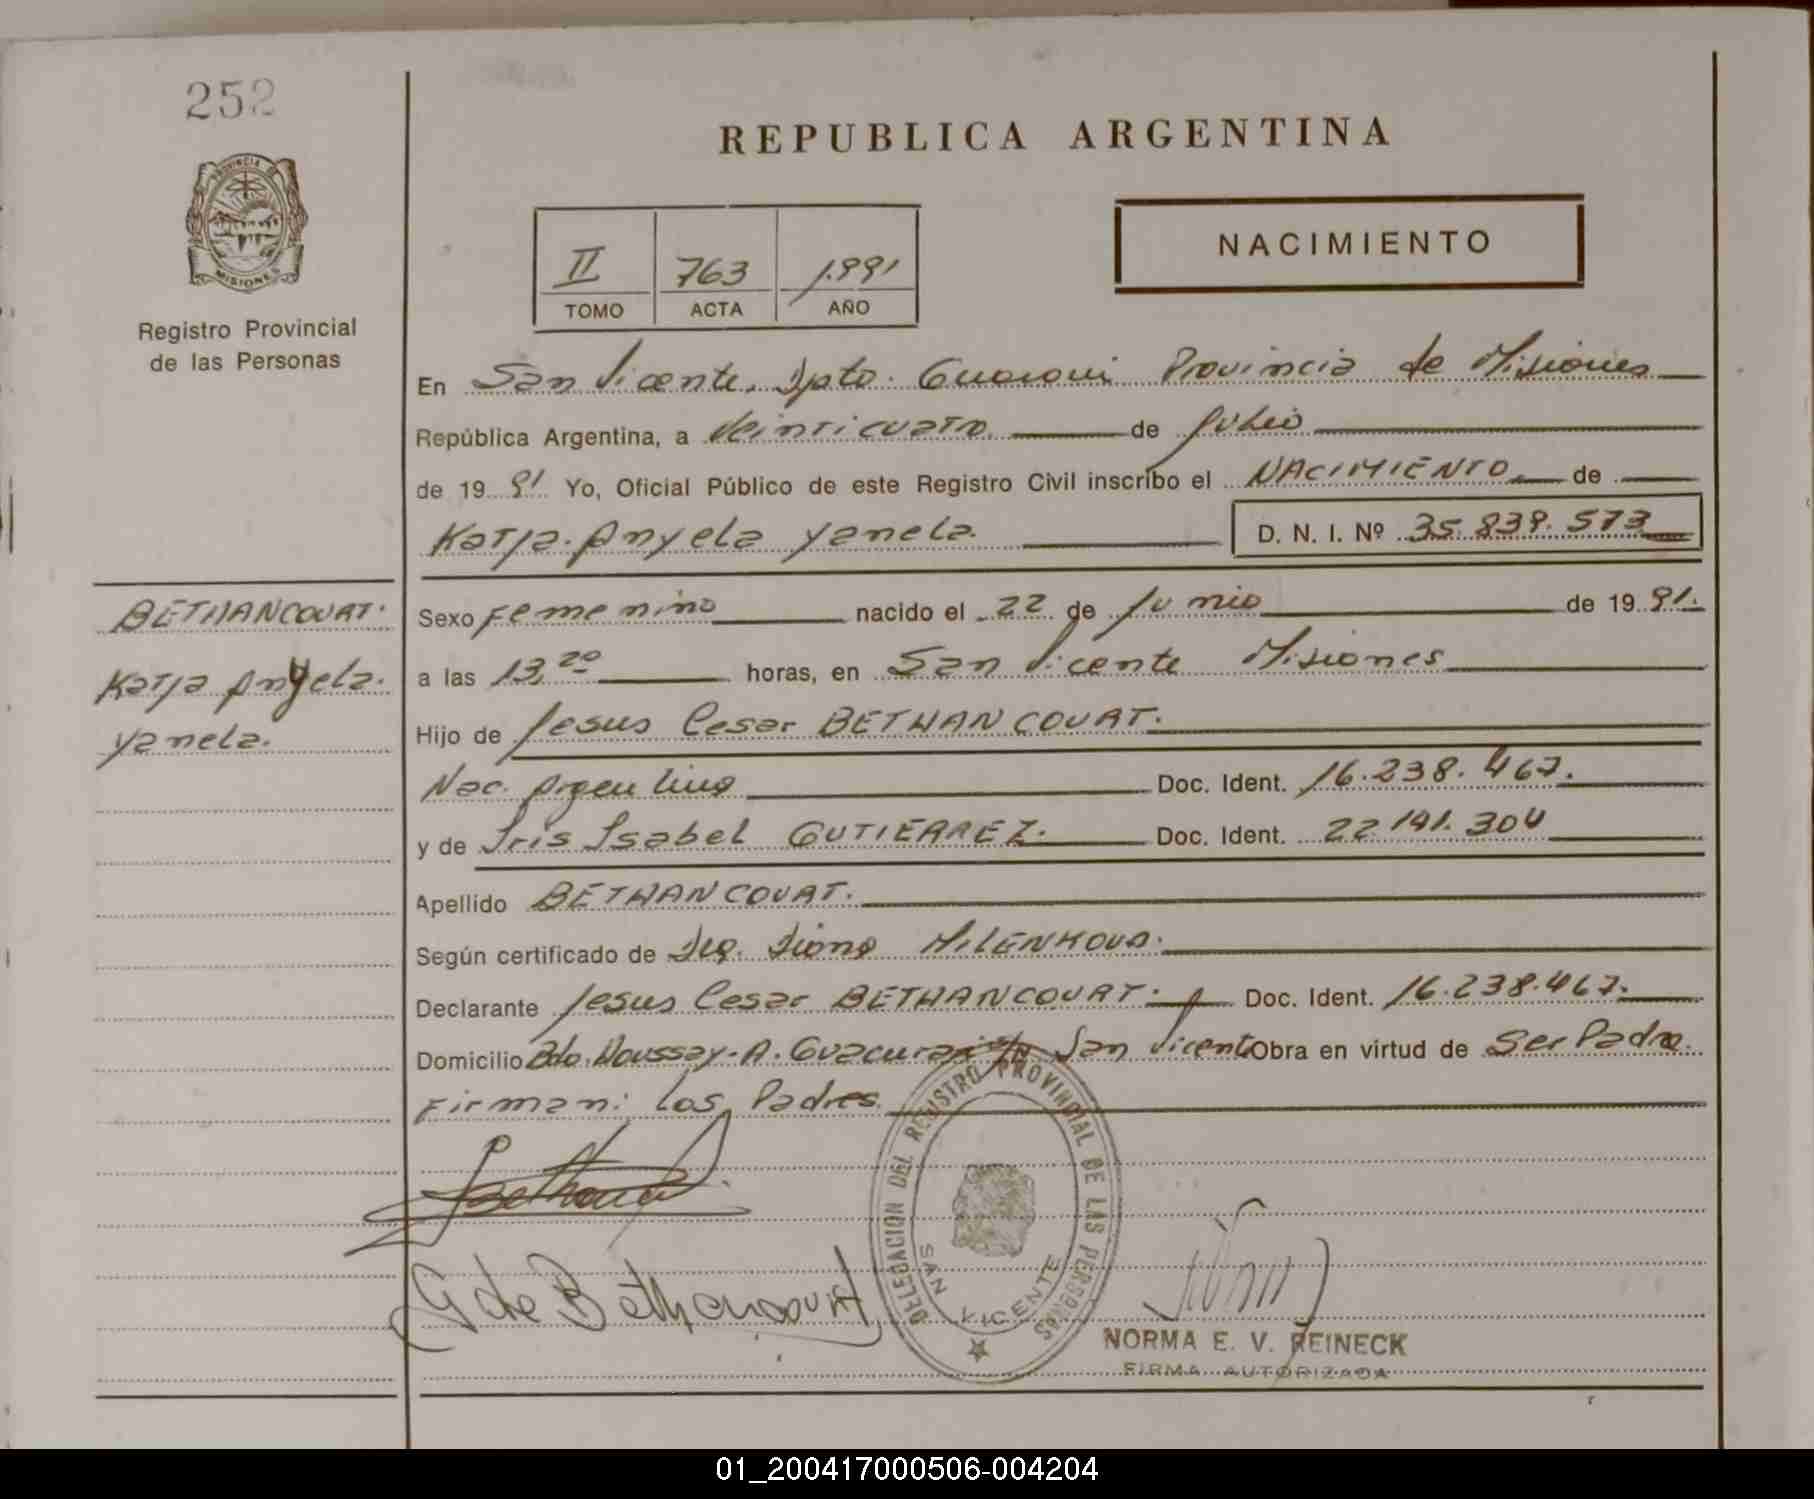 252
PROVINCIA DE
MISIONES
Registro Provincial
de las Personas
REPUBLICA ARGENTINA
II 763 1.991
TOMO ACTA AÑO
NACIMIENTO
En San Vicente, Dpto. Guarani Provincia de Misiones
República Argentina, a Veinticuatro de Julio
de 1991 Yo, Oficial Público de este Registro Civil inscribo el NACIMIENTO de
Katja Anyela Yanela. D. N. I. Nº 35.839.573
BETHANCOURT.
Katja Anyela.
Yanela.
Sexo Femenino nacido el 22 de Junio de 1991.
a las 13,20 horas, en San Vicente Misiones
Hijo de Jesus Cesar BETHANCOURT.
Nac. Argentino Doc. Ident. 16.238.467.
y de Iris Isabel GUTIERREZ. Doc. Ident. 22 191. 304
Apellido BETHANCOURT.
Según certificado de Diana
Declarante Jesus Cesar BETHANCOURT. Doc. Ident. 16.238.467.
Domicilio Bdo. Houssay - A. Guacurari San Vicente Obra en virtud de Ser Padre.
Firman: Los Padres
G de Bethancourt
DELEGACION DEL REGISTRO PROVINCIAL DE LAS PERSONAS
SAN VICENTE
NORMA E. V. REINECK
FIRMA AUTORIZADA
01_200417000506-004204